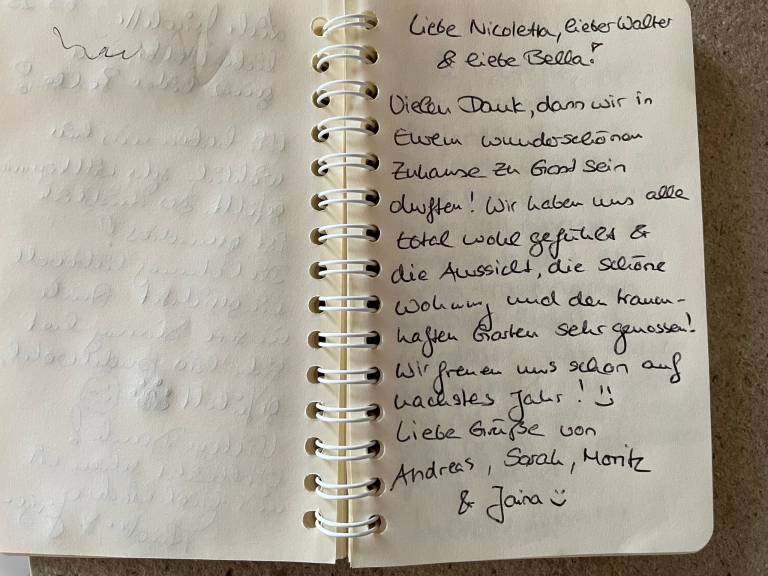 Liebe Nicoletta, lieber Walter
& liebe Bella!
Vielen Dank, dass wir in
Eurem wunderschönen
Zuhause zu Gast sein
durften! Wir haben uns alle
total wohl gefühlt &
die Aussicht, die schöne
Wohnung und den traum-
haften Garten sehr genossen!
Wir freuen uns schon auf
nächstes Jahr! :)
Liebe Grüße von
Andreas, Sarah, Moritz
& Jaina :)